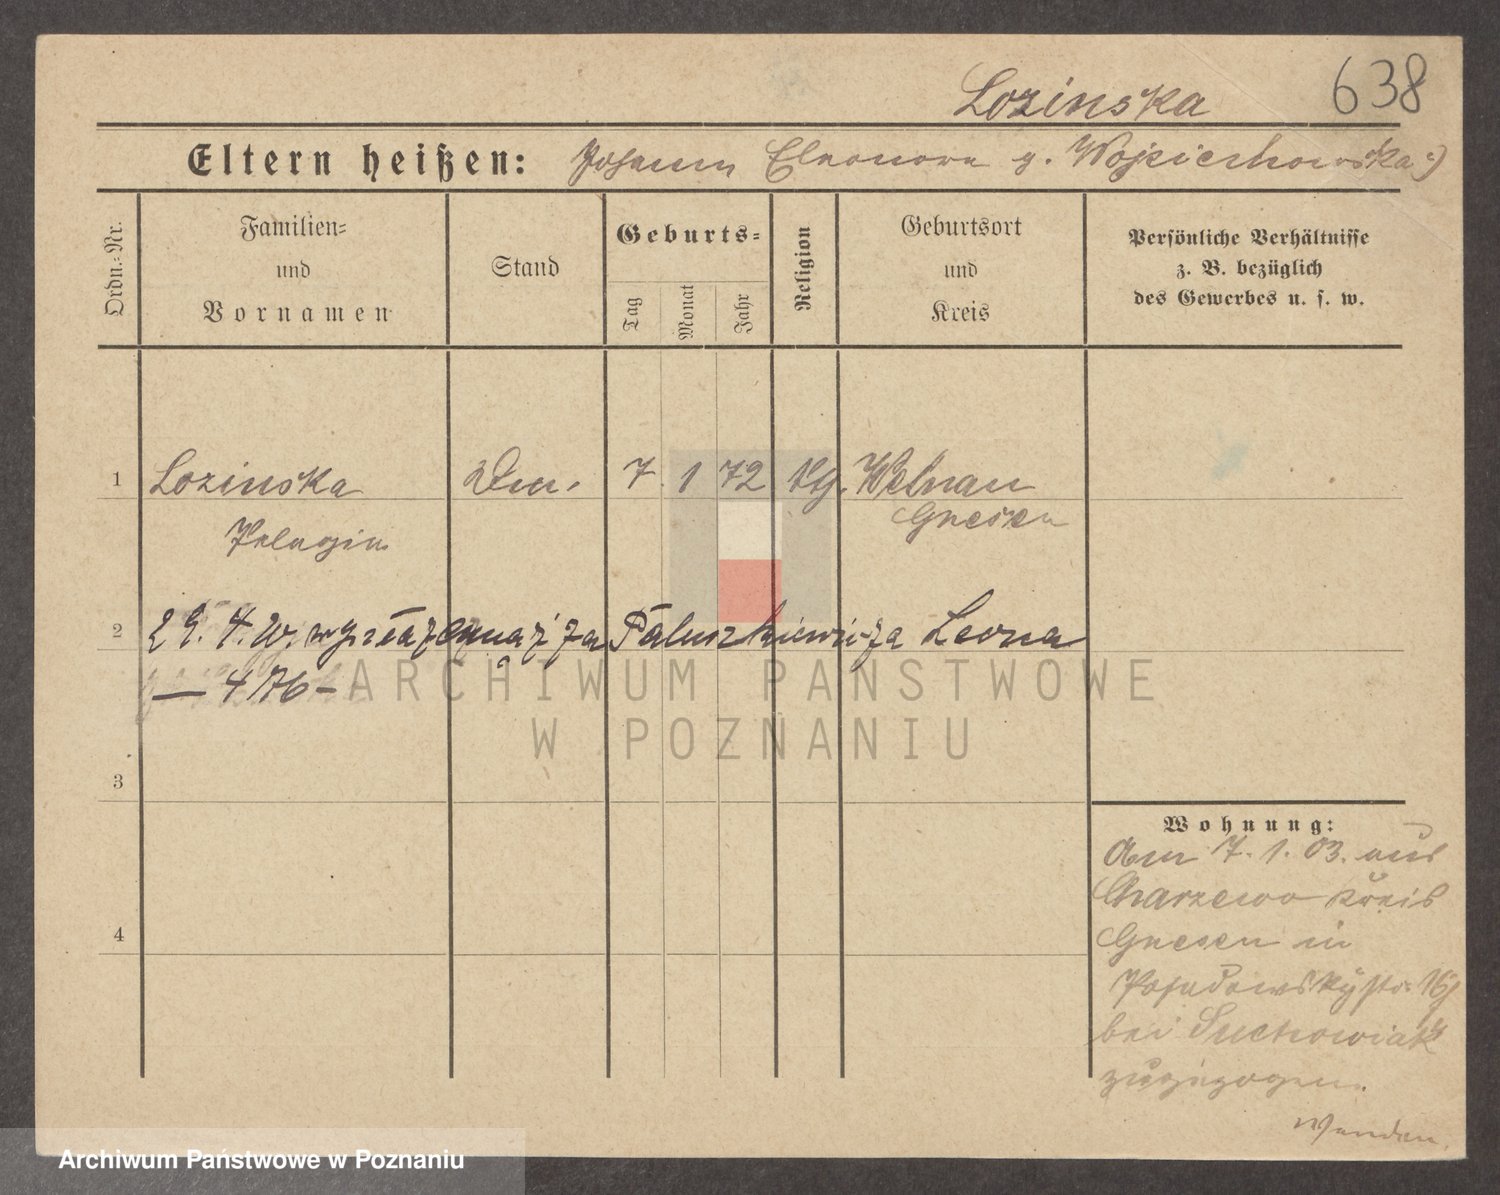 Lozinska 638
Eltern heißen: Johann Eleonora g. Wojciechowska
Ordn.-Nr.
Familien-
und
Vornamen
Stand
Geburts-
Tag Monat Jahr
Religion
Geburtsort
und
Kreis
Persönliche Verhältnisse
z. B. bezüglich
des Gewerbes u. s. w.
1 Lozinska 7. 1 72 Kg. Welnau
Pelagia Gnesen
2 29. 4. za Paluszkiewicza Leona
— 476 –
3
4
Wohnung:
Am 7. 1. 03. aus
Charzewo Kreis
Gnesen in
Posadowskystr. 16
bei Suchowiak
zugezogen.
Wenden.
ARCHIWUM PAŃSTWOWE
W POZNANIU
Archiwum Państwowe w Poznaniu